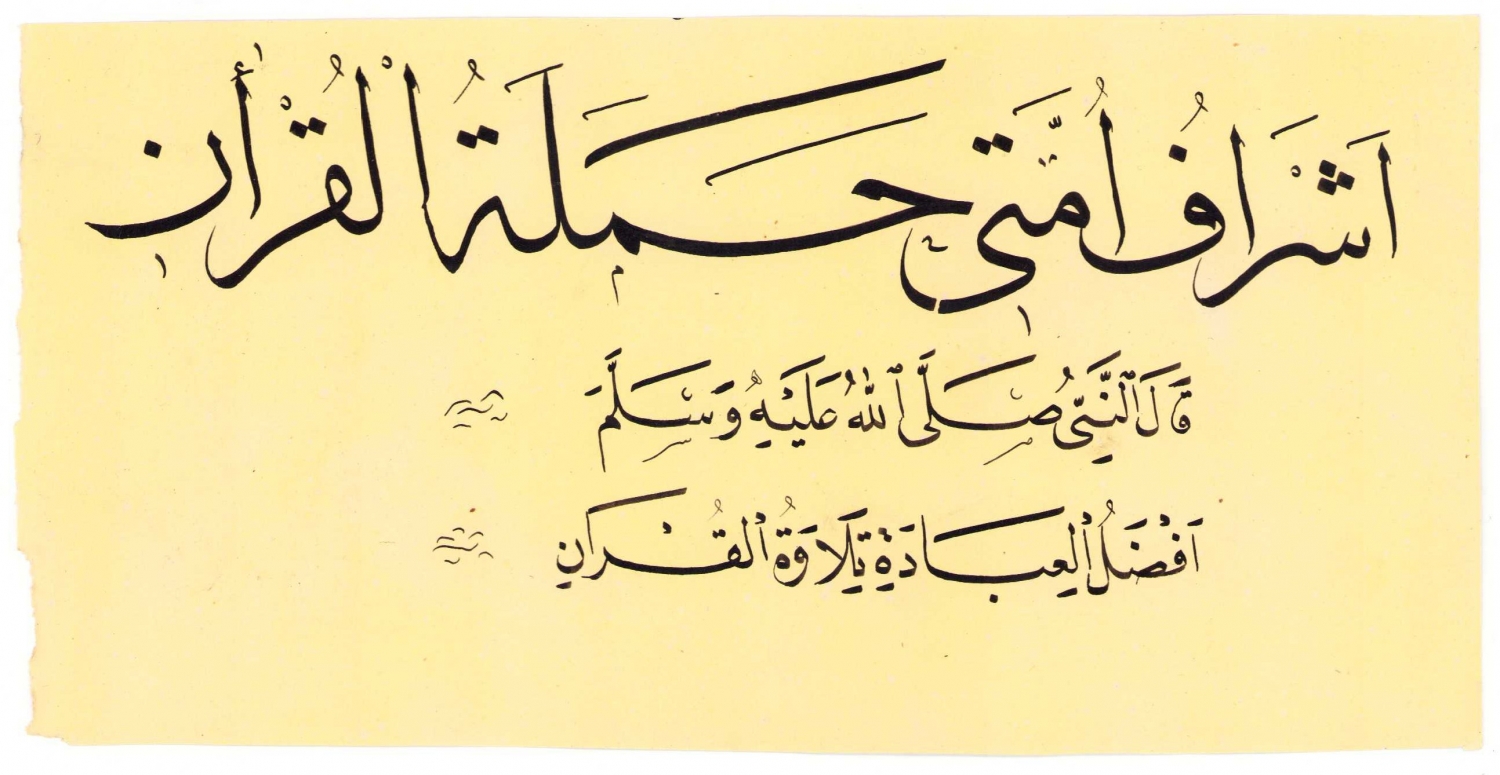 اَشْرَافُ اُمَّتٖى حَمَلَةُ الْقُرْأٰنِ
قَالَ النَّبِىُّ صَلَّى اللّٰهُ عَلَيْهِ وَسَلَّمَ
اَفْضَلُ الْعِبَادَةِ تِلَاوَةُ الْقُرْاٰنِ